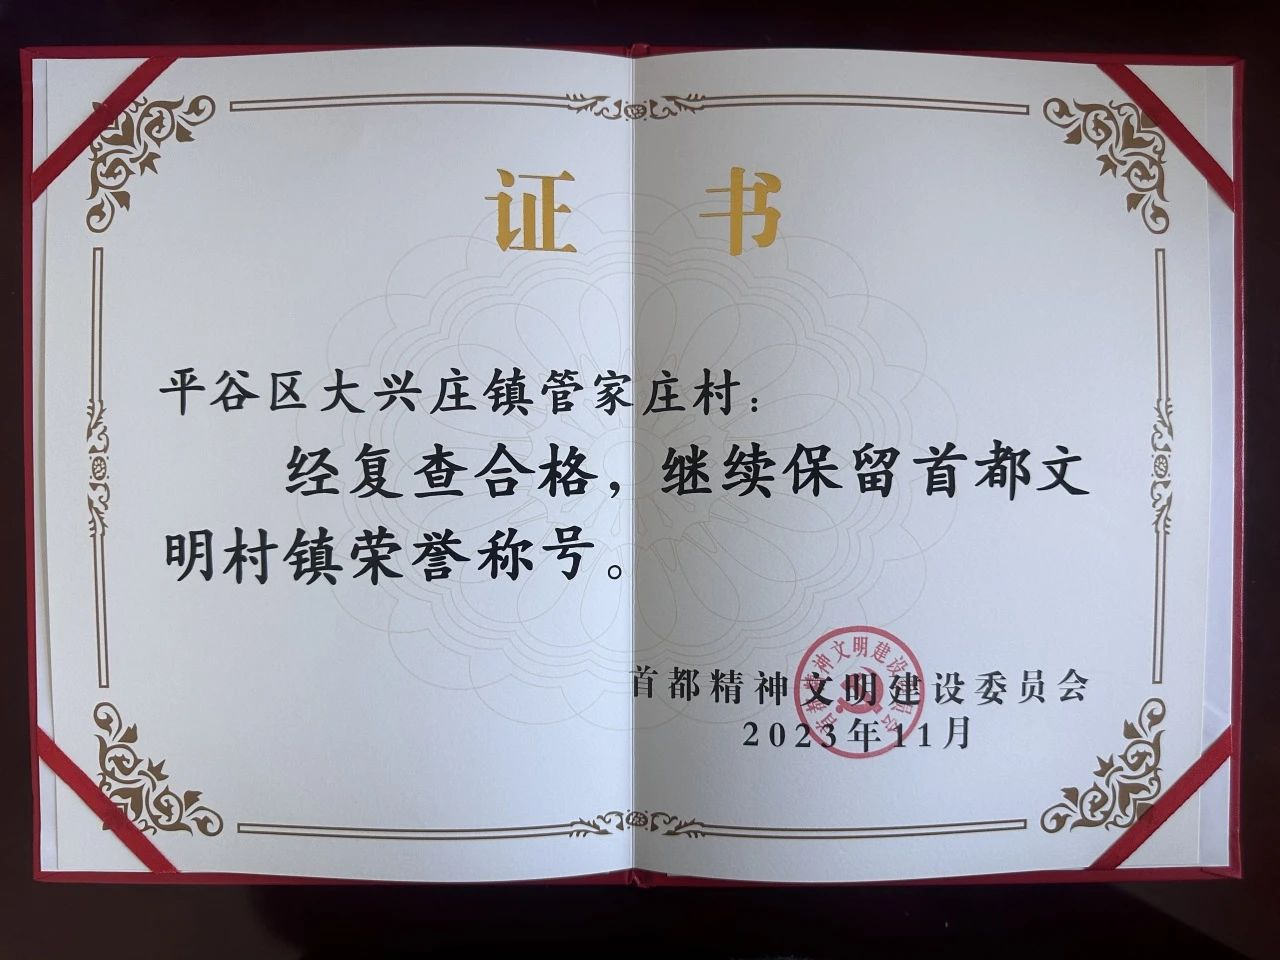 证书
平谷区大兴庄镇管家庄村：
经复查合格，继续保留首都文
明村镇荣誉称号。
首都精神文明建设委员会
2023年11月
首都精神文明建设委员会